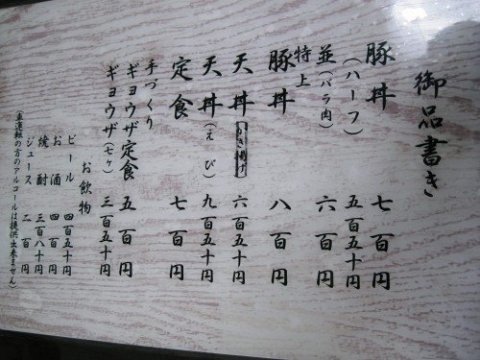 御品書き
豚丼 七百円
(ハーフ) 五百五十円
並(バラ肉) 六百円
特上
豚丼 八百円
天丼(かき揚げ) 六百五十円
天丼(えび) 九百五十円
定食 七百円
手づくり
ギョウザ定食 五百円
ギョウザ(七ヶ) 三百五十円
お飲物
ビール 四百五十円
お酒 四百円
焼酎 三百八十円
ジュース 二百円
(車運転の方のアルコールは提供出来ません)